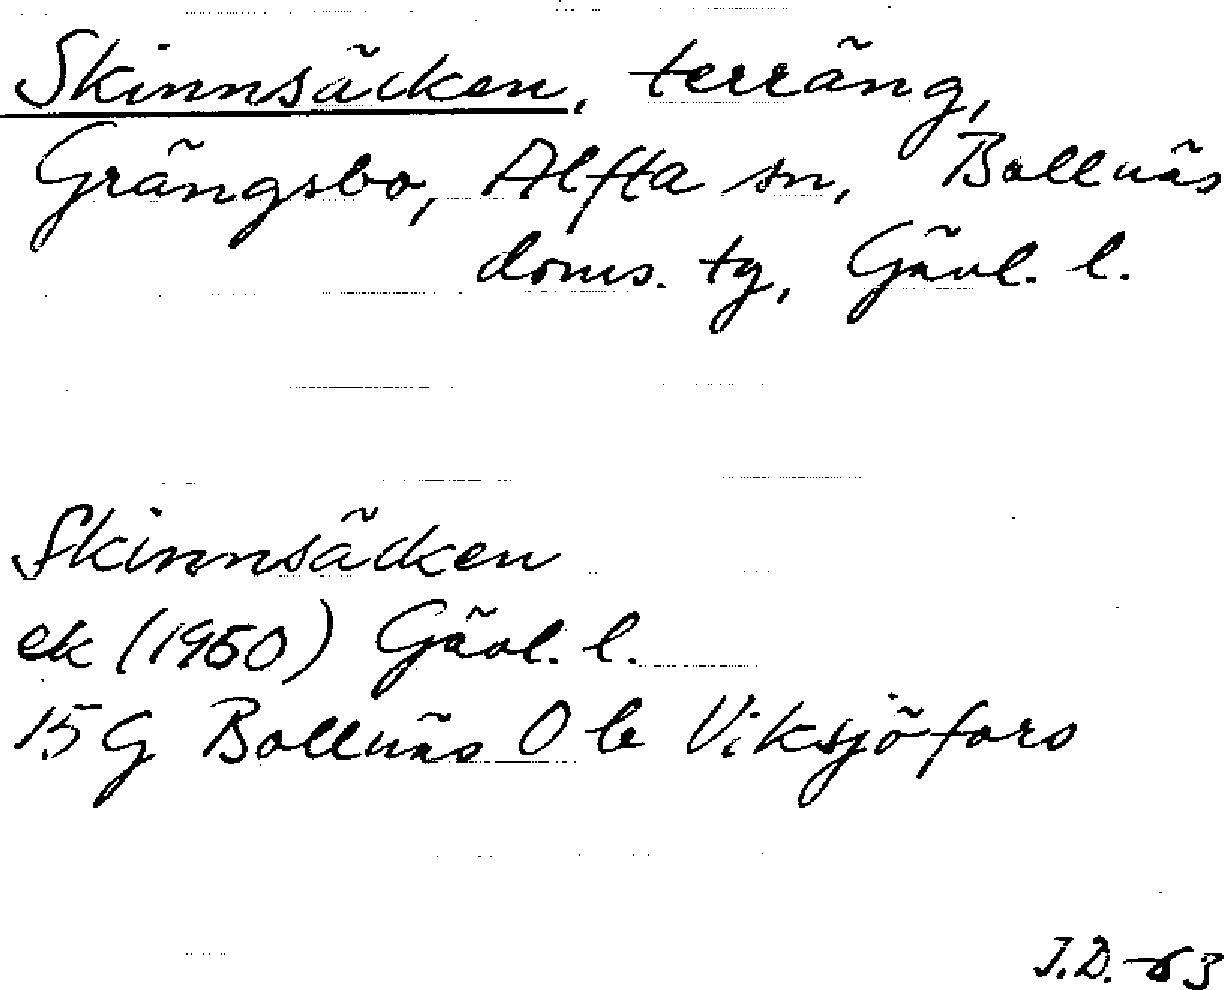 Skinnsäcken, terräng,
Grängsbo, Alfta sn, Bollnäs
doms. tg, Gävl. l.
Skinnsäcken
ek (1960) Gävl. l.
15 G Bollnäs 0 b Viksjöfors
J.D. -63